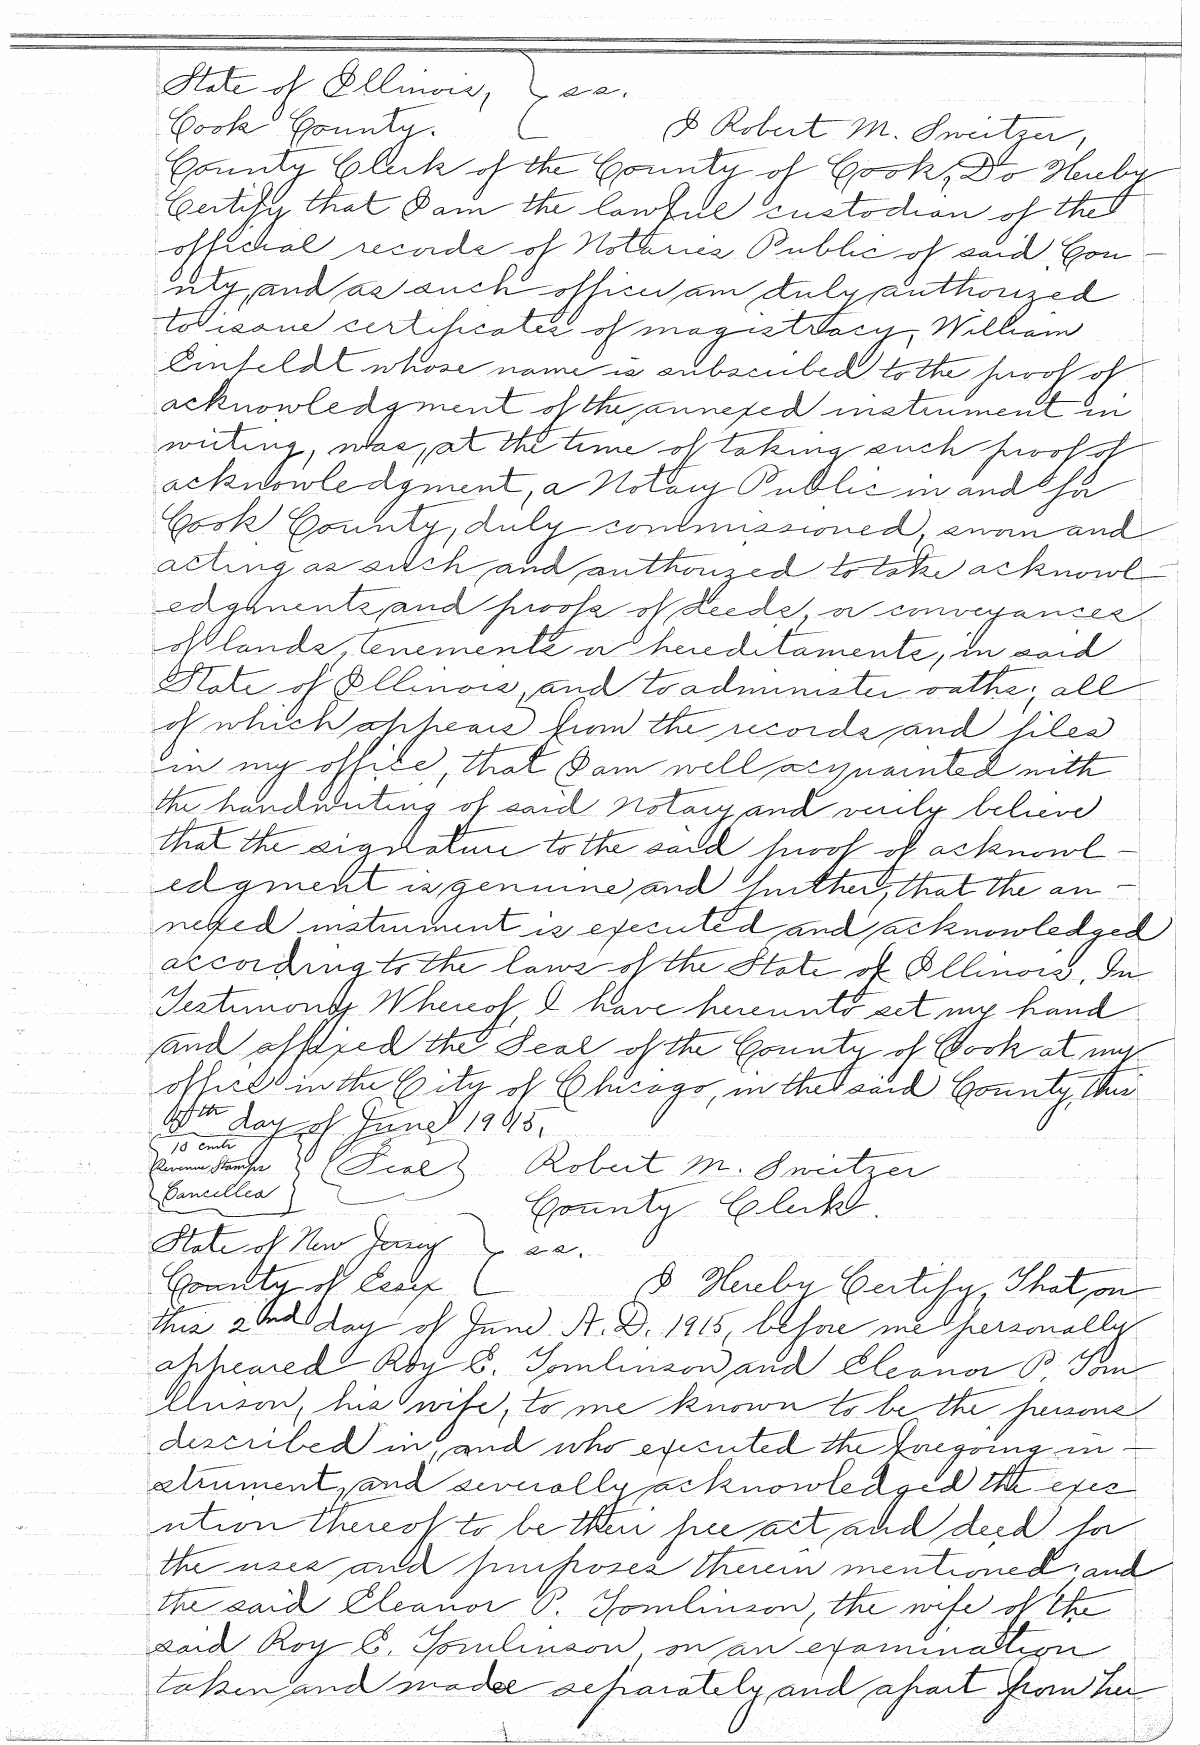 State of Illinois, } ss.
Cook County. I Robert M. Sweitzer,
County Clerk of the County of Cook, Do Hereby
Certify that I am the lawful custodian of the
official records of Notaries Public of said Cou-
nty, and as such officer am duly authorized
to issue certificates of magistracy, William
Einfeldt whose name is subscribed to the proof of
acknowledgment of the annexed instrument in
writing, was, at the time of taking such proof of
acknowledgment, a Notary Public in and for
Cook County, duly commissioned, sworn and
acting as such and authorized to take acknowl-
edgments and proofs of deeds, or conveyances
of lands, tenements or hereditaments, in said
State of Illinois, and to administer oaths; all
of which appears from the records and files
in my office, that I am well acquainted with
the handwriting of said Notary and verily believe
that the signature to the said proof of acknowl-
edgment is genuine and further, that the an-
nexed instrument is executed and acknowledged
according to the laws of the State of Illinois, In
Testimony Whereof, I have hereunto set my hand
and affixed the Seal of the County of Cook at my
office in the City of Chicago, in the said County, this
day of June 1915.
10 cents
Revenue Stamps (Seal) Robert M. Sweitzer
Cancelled County Clerk.
State of New Jersey } ss.
County of Essex I Hereby Certify, That, on
this 2nd day of June A.D. 1915, before me personally
appeared Roy E. Tomlinson and Eleanor P. Tom
linson, his wife, to me known to be the persons
described in, and who executed the foregoing in-
strument, and severally acknowledged the exec
ution thereof to be their free act and deed for
the uses and purposes therein mentioned; and
the said Eleanor P. Tomlinson, the wife of the
said Roy E. Tomlinson, on an examination
taken and made separately and apart from her